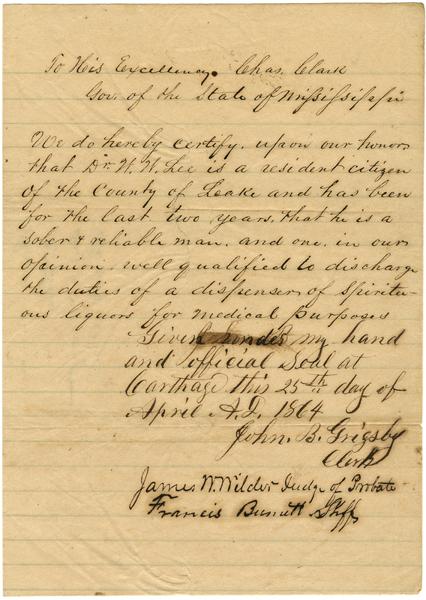 To His Excellency. Chas. Clark
Gov. of the State of Mississippi
We do hereby certify, upon our honors
that Dr. W. W. Lee is a resident citizen
of the County of Leake and has been
for the last two years, that he is a
sober & reliable man, and one, in our
opinion, well qualified to discharge
the duties of a dispenser of spiritu-
ous liquors for medical purposes
Given under my hand
and official Seal at
Carthage this 25th day of
April A.D. 1864
John. B. Grigsby
Clerk
James W. Wilder Judge of Probate
Francis Burnett Shff